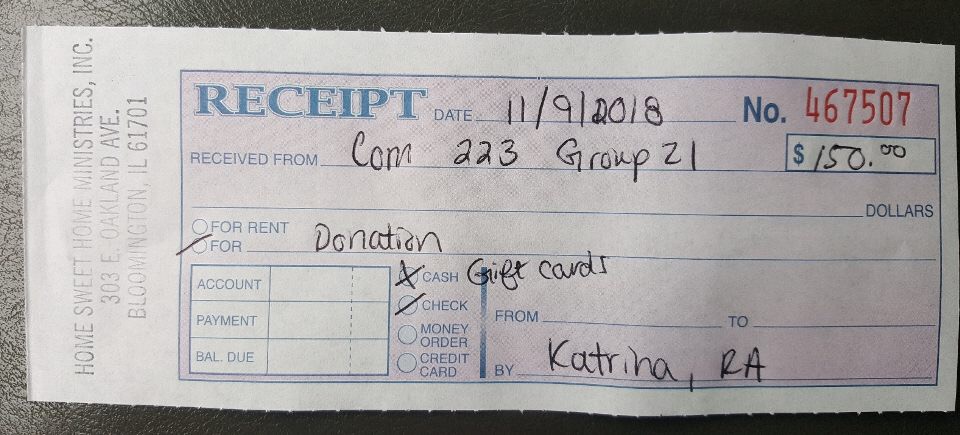 HOME SWEET HOME MINISTRIES, INC.
303 E. OAKLAND AVE.
BLOOMINGTON, IL 61701
RECEIPT DATE 11/9/2018 No. 467507
RECEIVED FROM Com 223 Group 21 $ 150.00
DOLLARS
FOR RENT
FOR Donation
ACCOUNT CASH Gift cards
CHECK
PAYMENT FROM TO
MONEY ORDER
BAL. DUE CREDIT CARD BY Katrina, RA